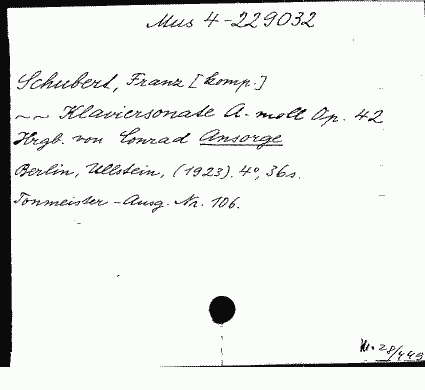 Mus 4-229032
Schubert, Franz [komp.]
~ ~ Klaviersonate A-moll Op. 42
Hrgb. von Conrad Ansorge
Berlin, Ullstein, (1923). 4°, 36s.
Tonmeister-Ausg. Nr. 106.
28/449